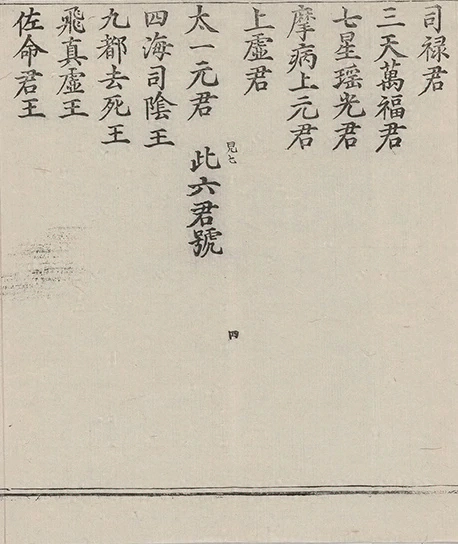 司禄君
三天萬福君
七星瑶光君
摩病上元君
上虛君
見七
太一元君　此六君號
四
四海司陰王
九都去死王
飛真虛王
佐命君王